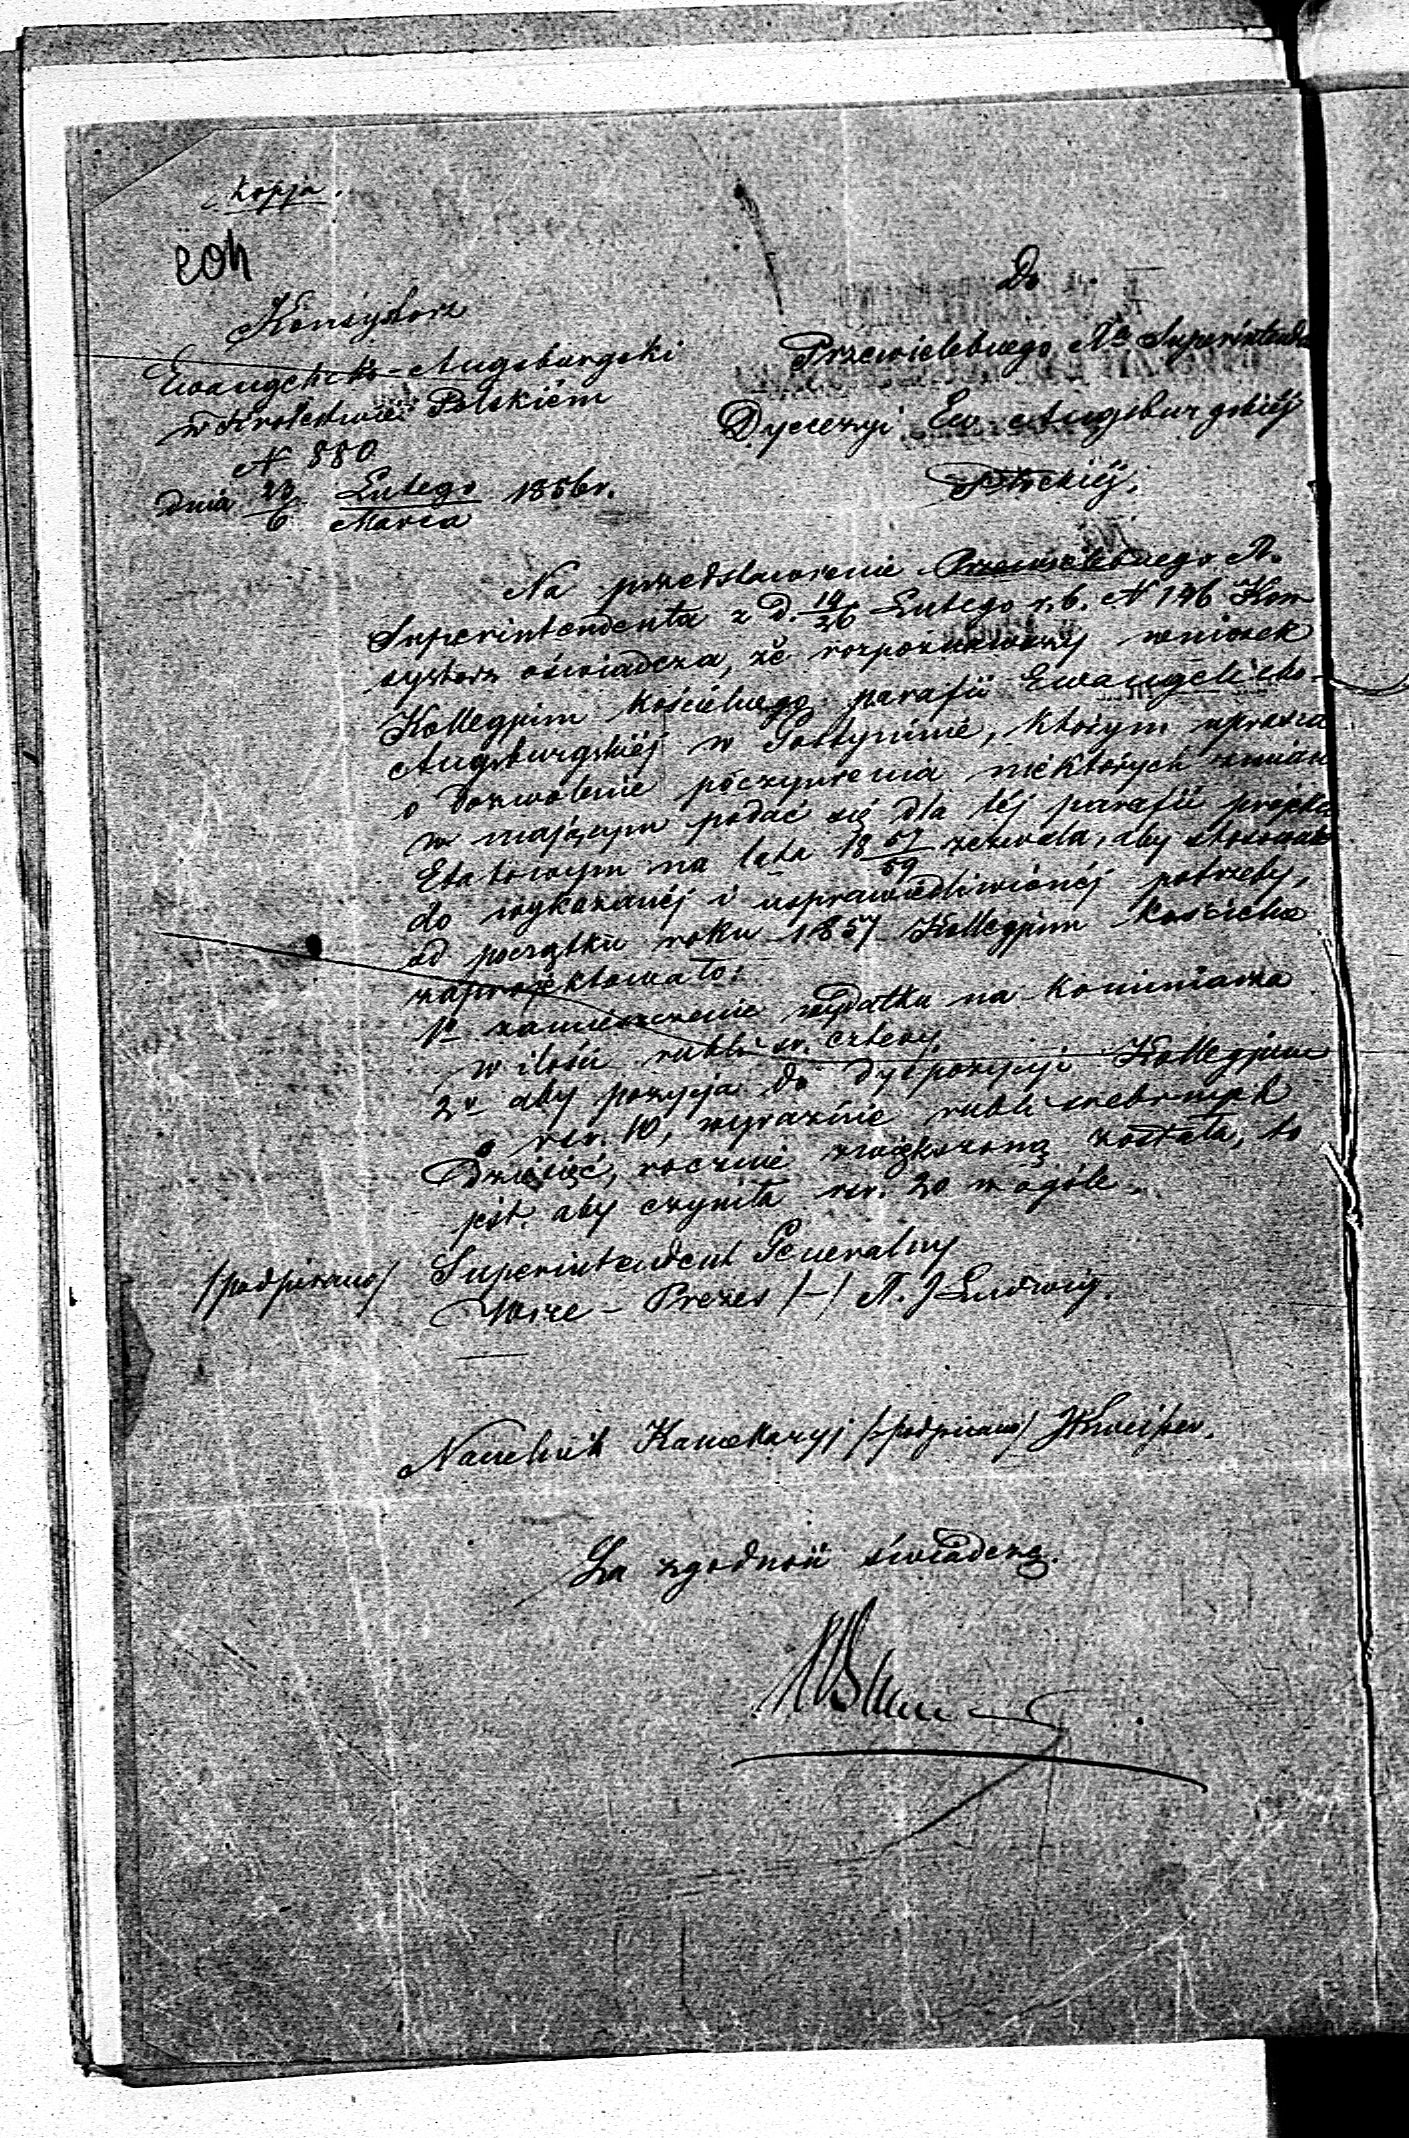 Kopja.
Konsystorz
Ewangelicko-Augsburgski
w Królestwie Polskiém
N 880
dnia 23/6 Lutego/Marca 1856 r.
Do
Przewielebnego Superintenda
Dyecezyi Ew. Augsburgskiéj
Na przedstawienie Przewielebnego
Superintendenta z d. 14/26 Lutego r. b. N 146 Kon
systorz oświadcza, że wniosek
Kollegjum kościelnego parafii Ewangelicko-
Augsburgskiéj w Gostyninie, którym uprasza
o dozwolenie poczynienia niektórych zmian
w mającym podać się dla téj parafii projekcie
Etatowym na lata 18 57/59 zezwala, aby stosownie
do wykazanéj i usprawiedliwionéj potrzeby,
od początku roku 1857 Kollegjum kościelne
zaprojektowało:
1º zamieszczenie wydatku na kominiarza
w ilości rubli sr. cztery.
2º aby pozycja do dyspozycji Kollegjum
o rsr. 10, wyraźnie rubli srebrnych
dziesięć, rocznie zwiększoną została, to
jest. aby czyniła rsr. 20 w ogóle.
/podpisano/ Superintendent Generalny
Wice-Prezes /-/ Ludwig.
Naczelnik Kancelaryj /podpisano/
Za zgodność świadczę.